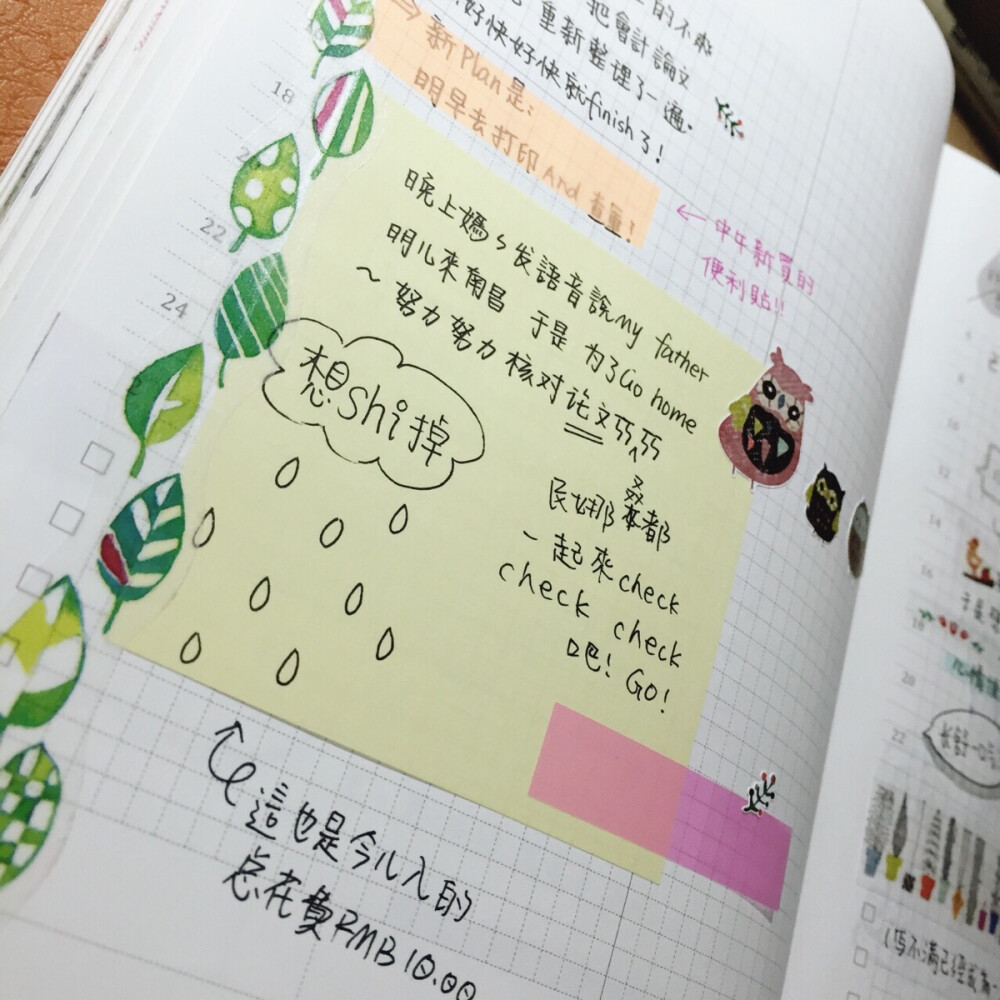 把會計論文
重新整理了一遍.
好快好快就finish了!
⇒ 新Plan是:
明早去打印And 查重!
← 中午新買的
便利貼!!
18
22
24
晚上媽ㄣ发語音說my father
明儿來南昌 于是 为了Go home
~努力努力核对论文ㄞㄞ
想shi掉
民娜桑都
一起來check
check check
吧! Go!
這也是今儿入的
总花費RMB10.00
8
12
14
16
18
20
22
于是
心情